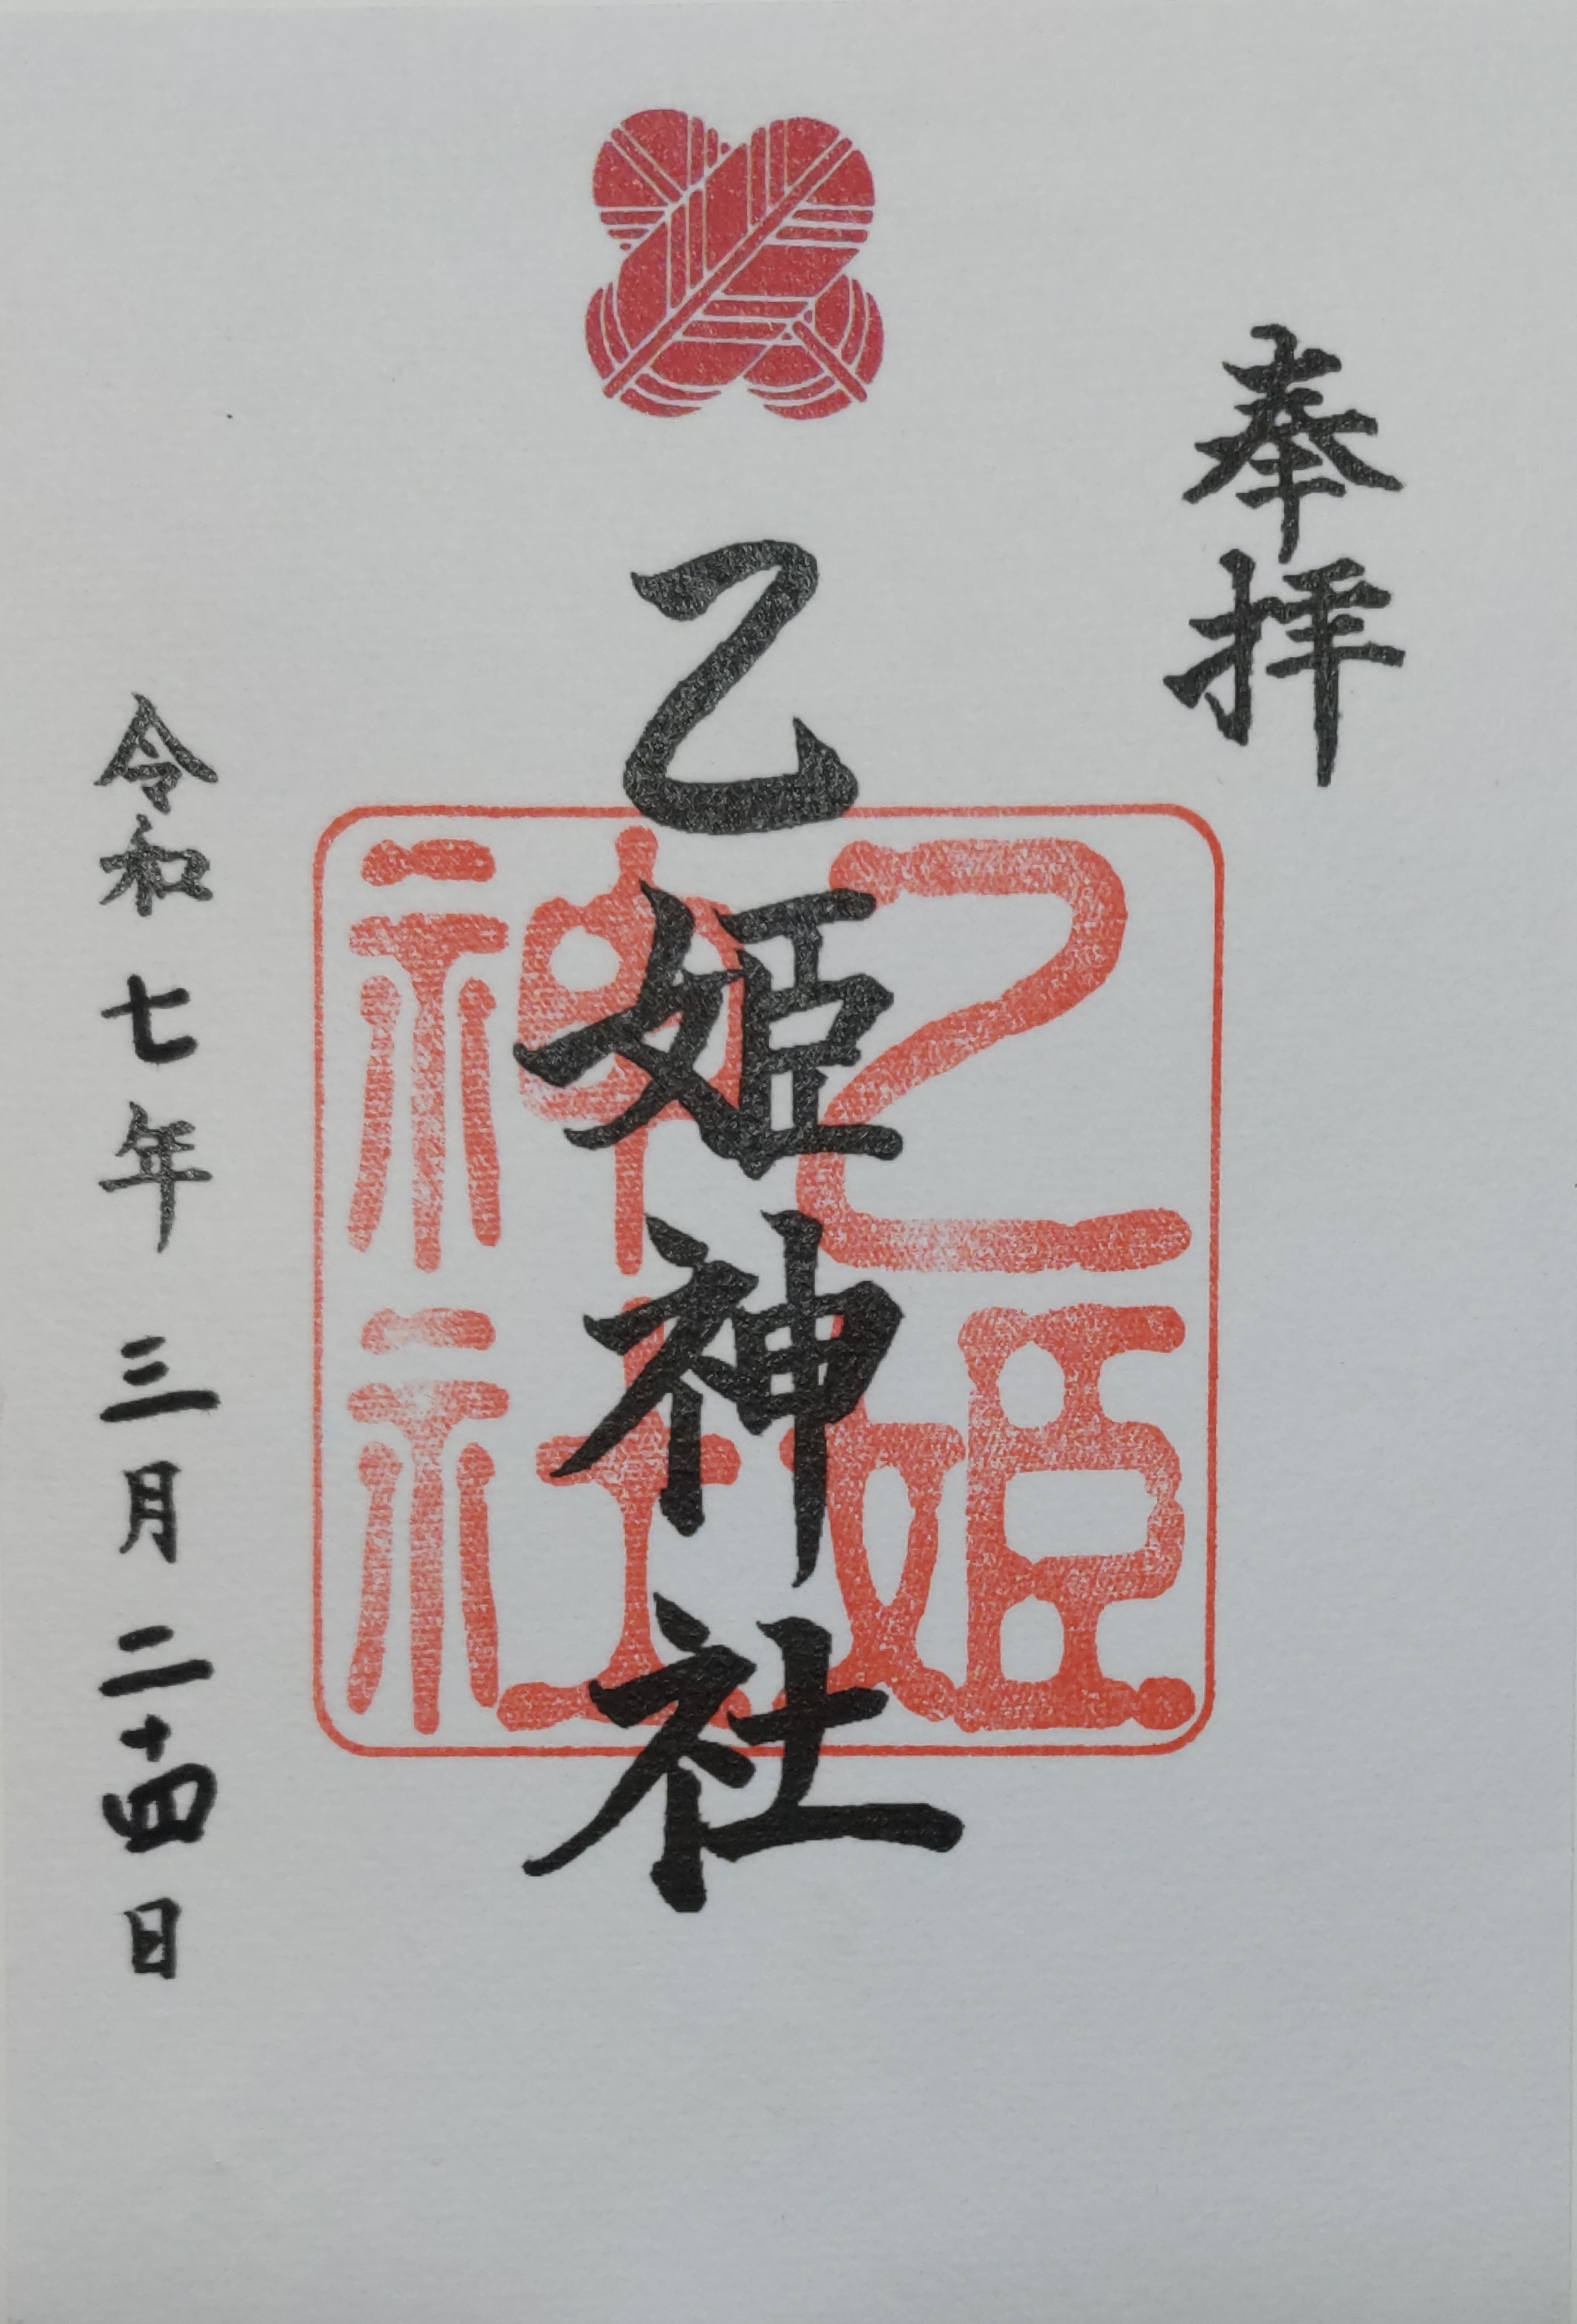 奉拝
乙姫神社
乙姫
神社
令和七年三月二十四日